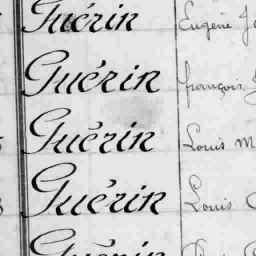 Guérin Eugène
Guérin françois
Guérin Louis M
Guérin Louis
Guérin